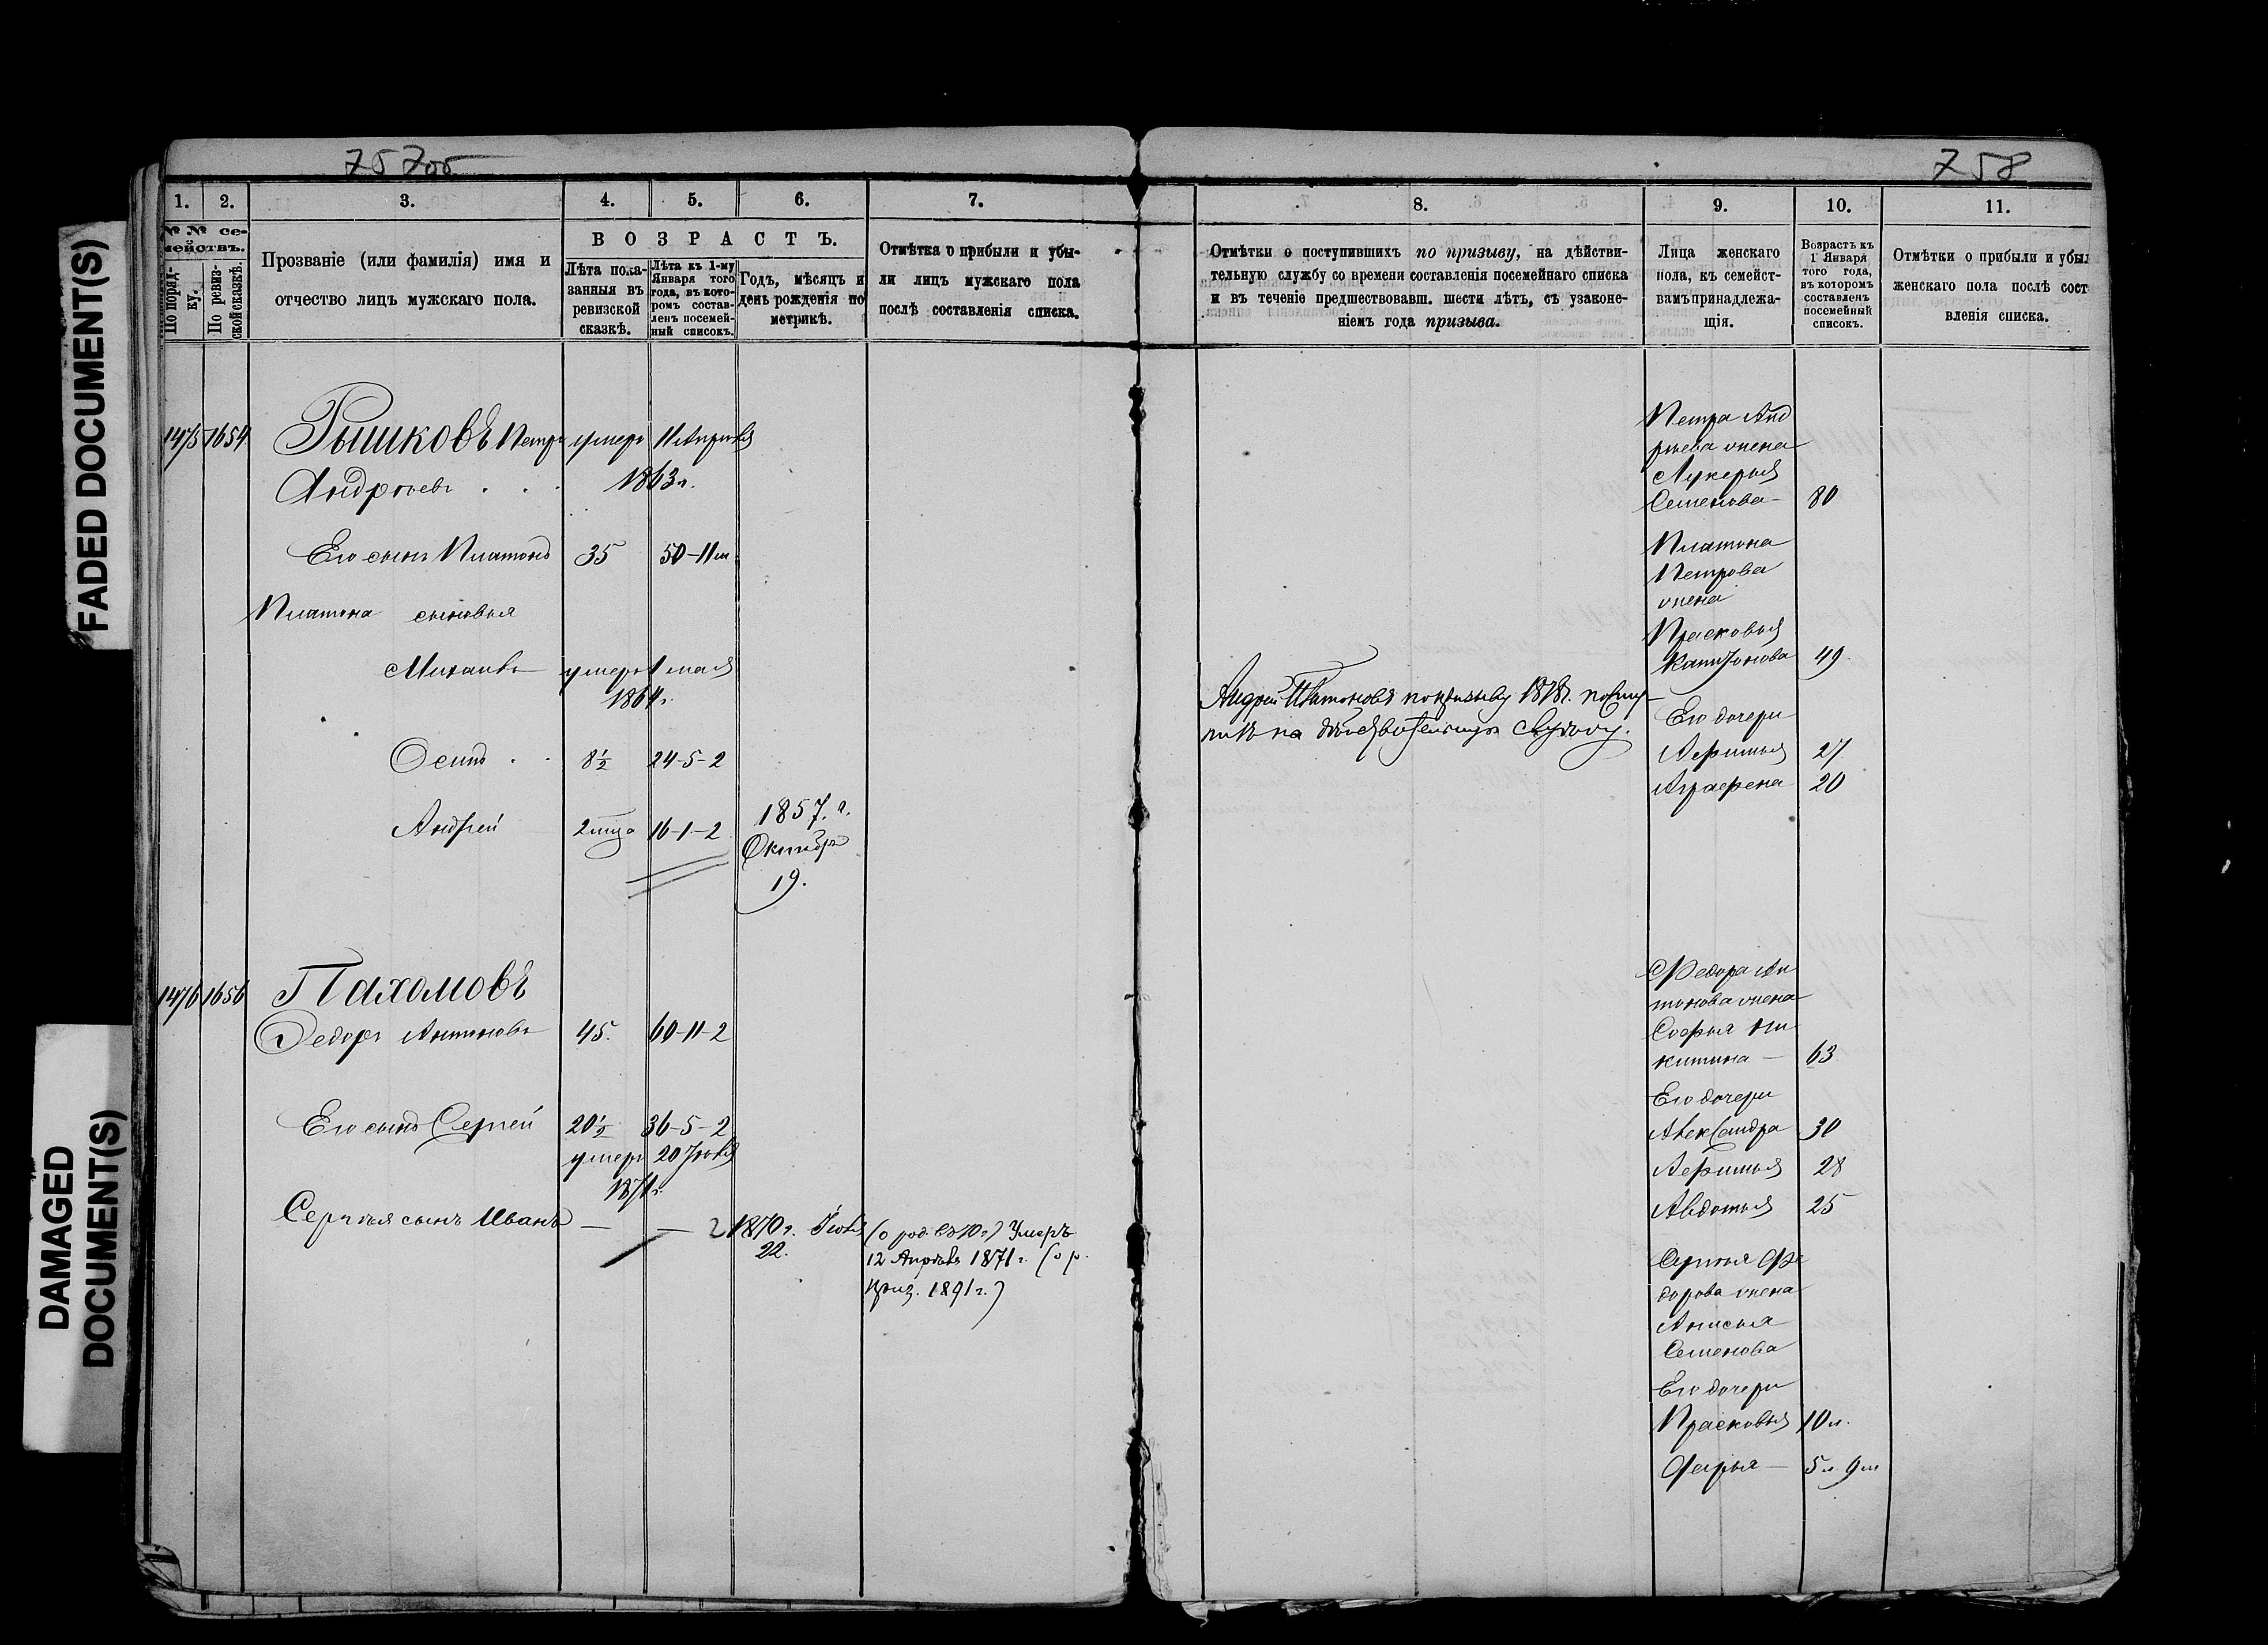 757об
758
FADED DOCUMENT(S)
DAMAGED
DOCUMENT(S)
1.
2.
3.
4.
5.
6.
7.
№ № се-
мействъ.
По поряд-
ку.
По ревиз-
ской сказкѣ.
Прозваніе (или фамилія) имя и
отчество лицъ мужскаго пола.
ВОЗРАСТЪ.
Лѣта пока-
занныя въ
ревизской
сказкѣ.
Лѣта къ 1-му
Января того
года, въ кото-
ромъ состав-
ленъ посемей-
ный списокъ.
Годъ, мѣсяцъ и
день рожденія по
метрикѣ.
Отмѣтка о прибыли и убы-
ли лицъ мужскаго пола
послѣ составленія списка.
1475 1654 Рышковъ Петръ умеръ 11 Апрѣля
Андреевъ . . . 1863 г.
Его сынъ Платонъ 35 50-11 м
Платона сыновья
Михаилъ умеръ 1 мая
1864 г.
Осипъ . . 8½ 24-5-2
Андрей 2 мца 16-1-2 1857. г.
Октября
19.
1476 1656 Пахомовъ
Федоръ Антоновъ 45. 60-11-2
Его сынъ Сергей 20½ 36-5-2
умеръ 20 Іюля
1871 г.
Сергѣя сынъ Иванъ — — 2 1870 г. Іюля (о род. въ 70 г) Умеръ
22. 12 Апрѣля 1871 г. (о р.
Приз. 1891 г.)
8.
9.
10.
11.
Отмѣтки о поступившихъ по призыву, на дѣйстви-
тельную службу со времени составленія посемейнаго списка
и въ теченіе предшествовавш. шести лѣтъ, съ узаконе-
ніемъ года призыва.
Лица женскаго
пола, къ семейст-
вамъ принадлежа-
щія.
Возрастъ къ
1 Января
того года,
въ которомъ
составленъ
посемейный
списокъ.
Отмѣтки о прибыли и убыл
женскаго пола послѣ сост
вленія списка.
Петра Анд
рѣева жена
Лукерья
Семенова — 80
Платона
Петрова
жена
Прасковья
Капитонова 49.
Андрей Платоновъ по призыву 1878 г. посту-
пилъ на дѣйствительную службу.
Его дочери
Афимья 27
Аграфена 20
Федора Ан
тонова жена
Софья Ни
китина — 63
Его дочери
Александра 30
Афимья 28
Авдотья 25
Сергѣя Фе
дорова жена
Анисья
Семенова
Его дочери
Прасковья 10 л.
Дарья — 5 л. 9 м